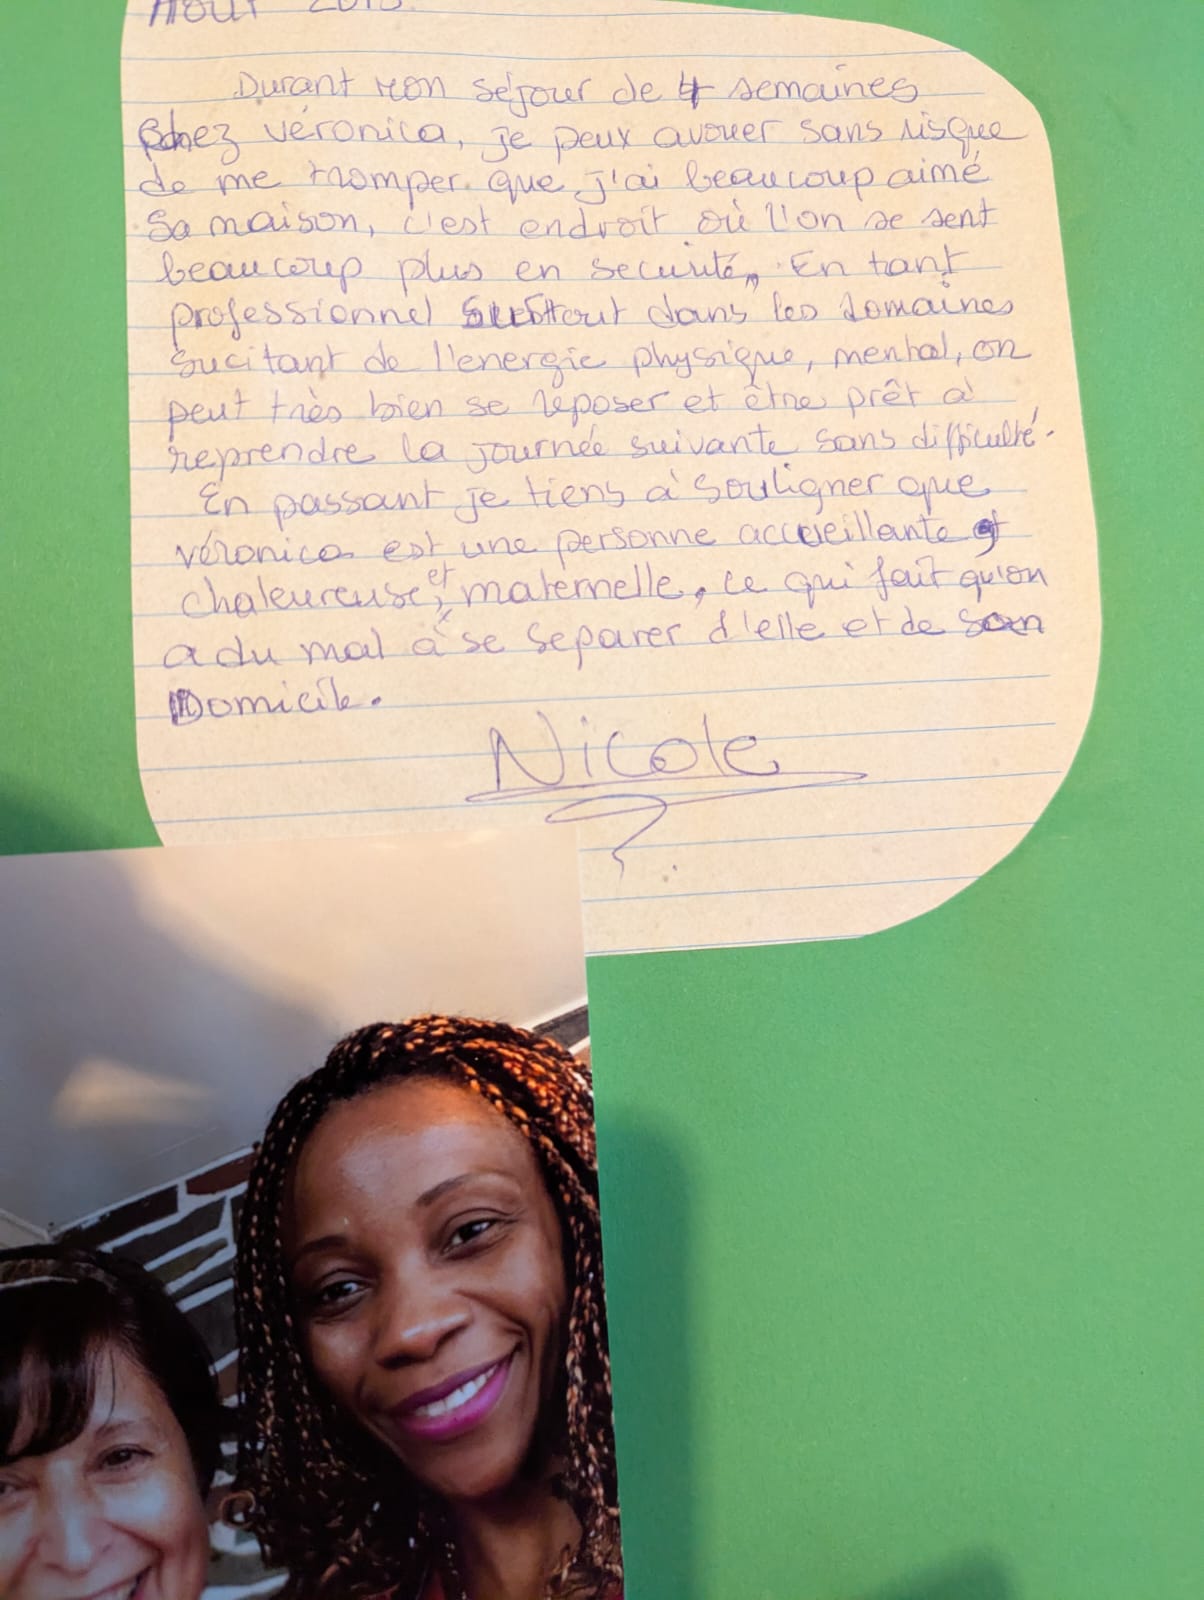 Août
Durant mon séjour de 4 semaines
chez véronica, je peux avouer sans risque
de me tromper que j'ai beaucoup aimé
sa maison, c'est endroit où l'on se sent
beaucoup plus en securité. En tant
professionnel surtout dans les domaines
sucitant de l'energie physique, mental, on
peut très bien se reposer et être prêt à
reprendre la journée suivante sans difficulté.
En passant je tiens à souligner que
véronica est une personne accueillante
chaleureuse, et maternelle, ce qui fait qu'on
a du mal à se separer d'elle et de son
Domicile.
Nicole